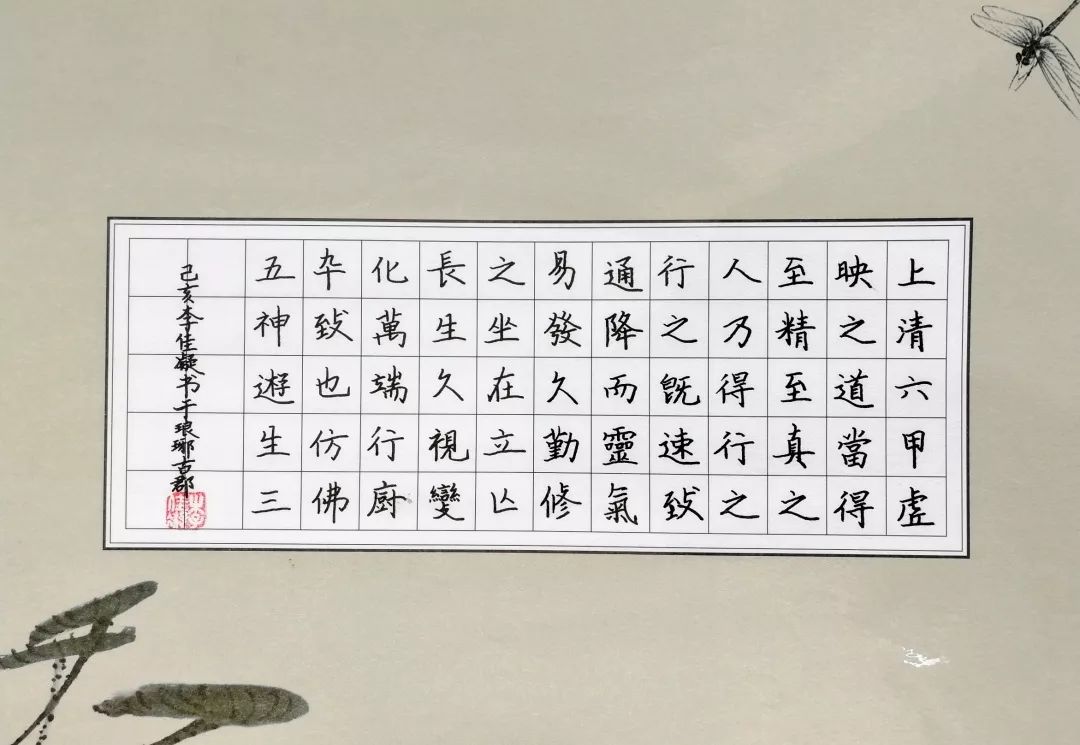 上清六甲虛
映之道當得
至精至真之
人乃得行之
行之既速致
通降而靈氣
易發久勤修
之坐在立亾
長生久視變
化萬端行廚
卒致也仿佛
五神遊生三
己亥李佳凝书于琅琊古郡